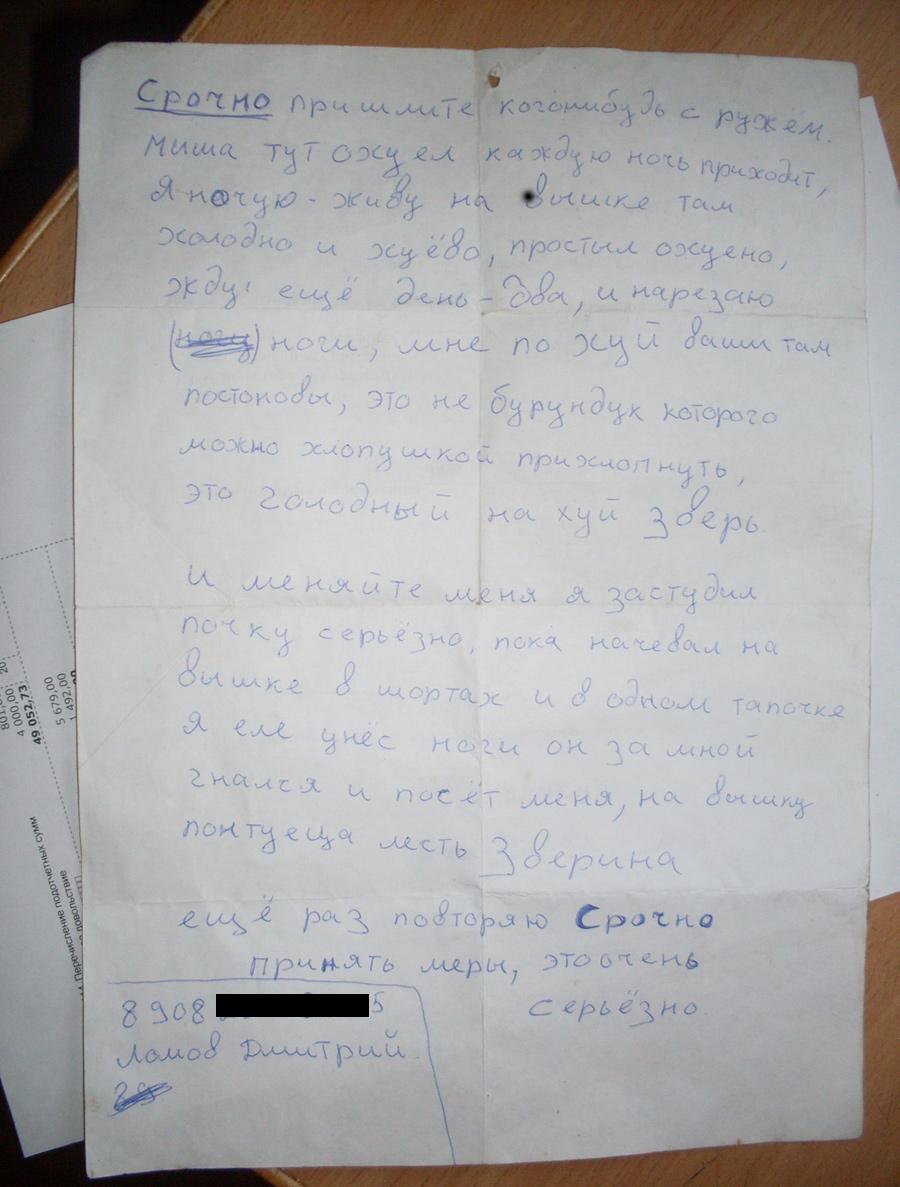 Срочно пришлите когонибудь с ружём.
Миша тут охуел каждую ночь приходит,
Я ночую - живу на вышке там
холодно и хуёво, простыл охуено,
жду ещё день-два, и нарезаю
ноги, мне по хуй ваши там
постоновы, это не бурундук которого
можно хлопушкой прихлопнуть,
это голодный на хуй зверь.
И меняйте меня я застудил
почку серьёзно, пока начевал на
вышке в шортах и в одном тапочке
Я еле унёс ноги он за мной
гнался и посёт меня, на вышку
понтуеща лесть Зверина
ещё раз повторяю Срочно
принять меры, это очень
Серьёзно.
8908 5
Ломов Дмитрий.
20
4 000,00
49 052,73
5 679,00
1 492,00
Перечисление подотчетных сумм